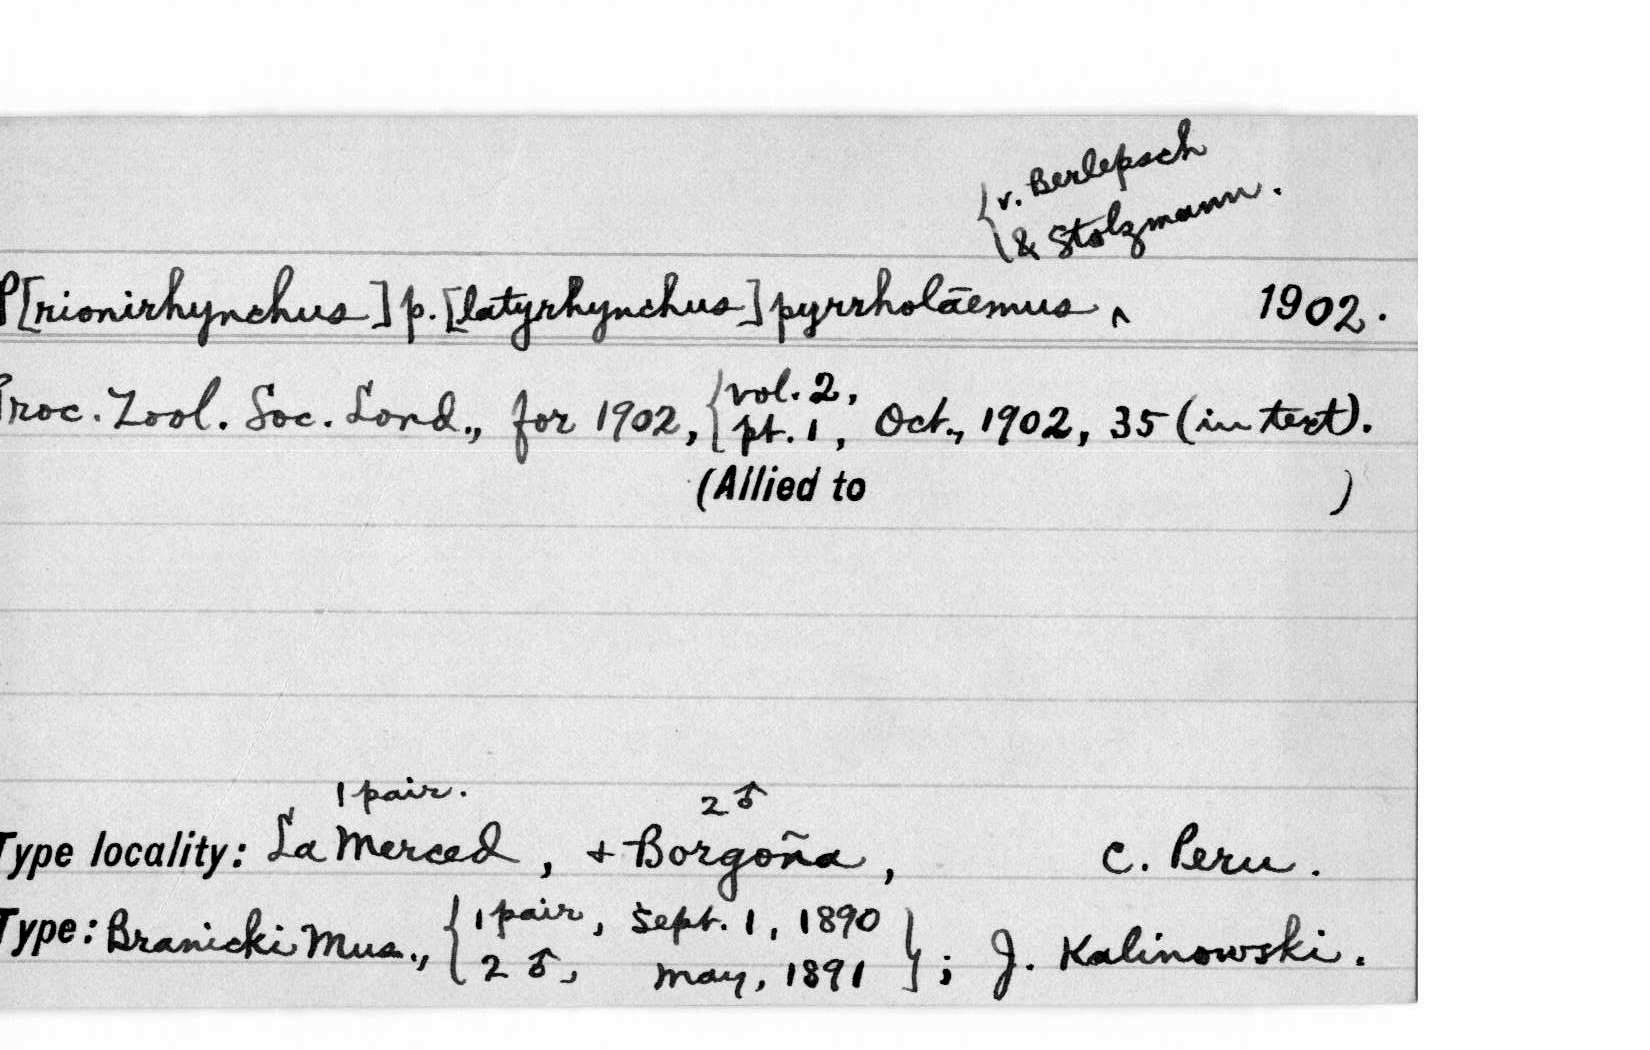 {v. Berlepsch
& Stolzmann.
P[rionirhynchus] p.[latyrhynchus] pyrrholāemus ^ 1902.
Proc. Zool. Soc. Lond., for 1902, {vol. 2, pt. 1, Oct., 1902, 35 (in text).
(Allied to )
1 pair. 2 ♂
Type locality: La Merced, + Borgoña, C. Peru.
Type: Branicki Mus., {1 pair, Sept. 1, 1890
2 ♂, May, 1891}; J. Kalinowski.